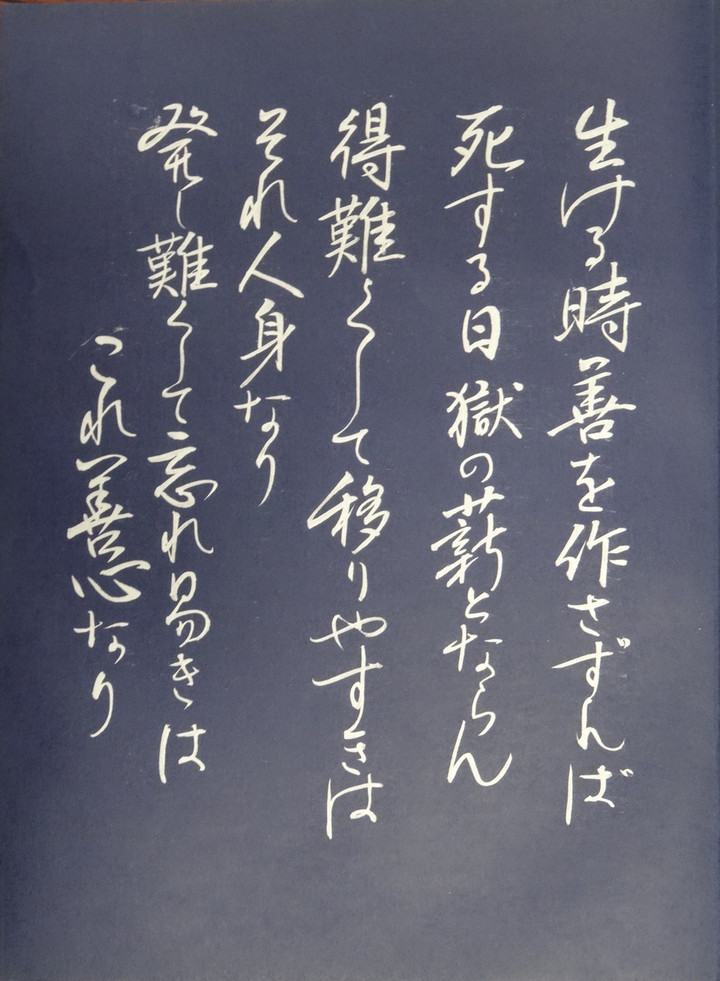 生ける時善を作さずんば
死する日獄の薪とならん
得難くして移りやすきは
それ人身なり
発し難くして忘れ易きは
これ善心なり